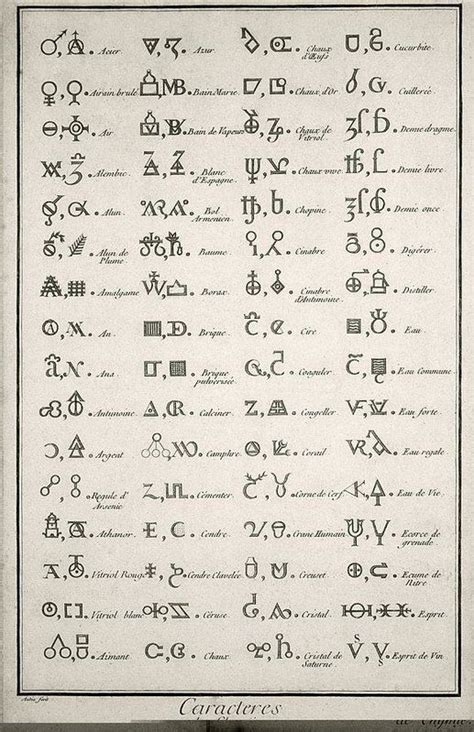 Acier Azur Chaux d'Œufs Cucurbite
Airain brulé Bain Marie Chaux d'Or Cuillerée
Air Bain de Vapeurs Chaux de Vitriol Demie dragme
Alembic Blanc d'Espagne Chaux vive Demie livre
Alun Bol Armenien Chopine Demie once
Alun de Plume Baume Cinabre Digérer
Amalgame Borax Cinabre d'Antimoine Distiller
An Brique Cire Eau
Ana Brique pulverisée Coaguler Eau Commune
Antimoine Calciner Congeller Eau forte
Argent Camphre Corail Eau regale
Regule d'Arsenic Cémenter Corne de Cerf Eau de Vie
Athanor Cendre Crane Humain Ecorce de grenade
Vitriol Rouge Cendre Clavelée Creuset Ecume de Nitre
Vitriol blanc Céruse Cristal Esprit
Aimant Chaux Cristal de Saturne Esprit de Vin
Caracteres